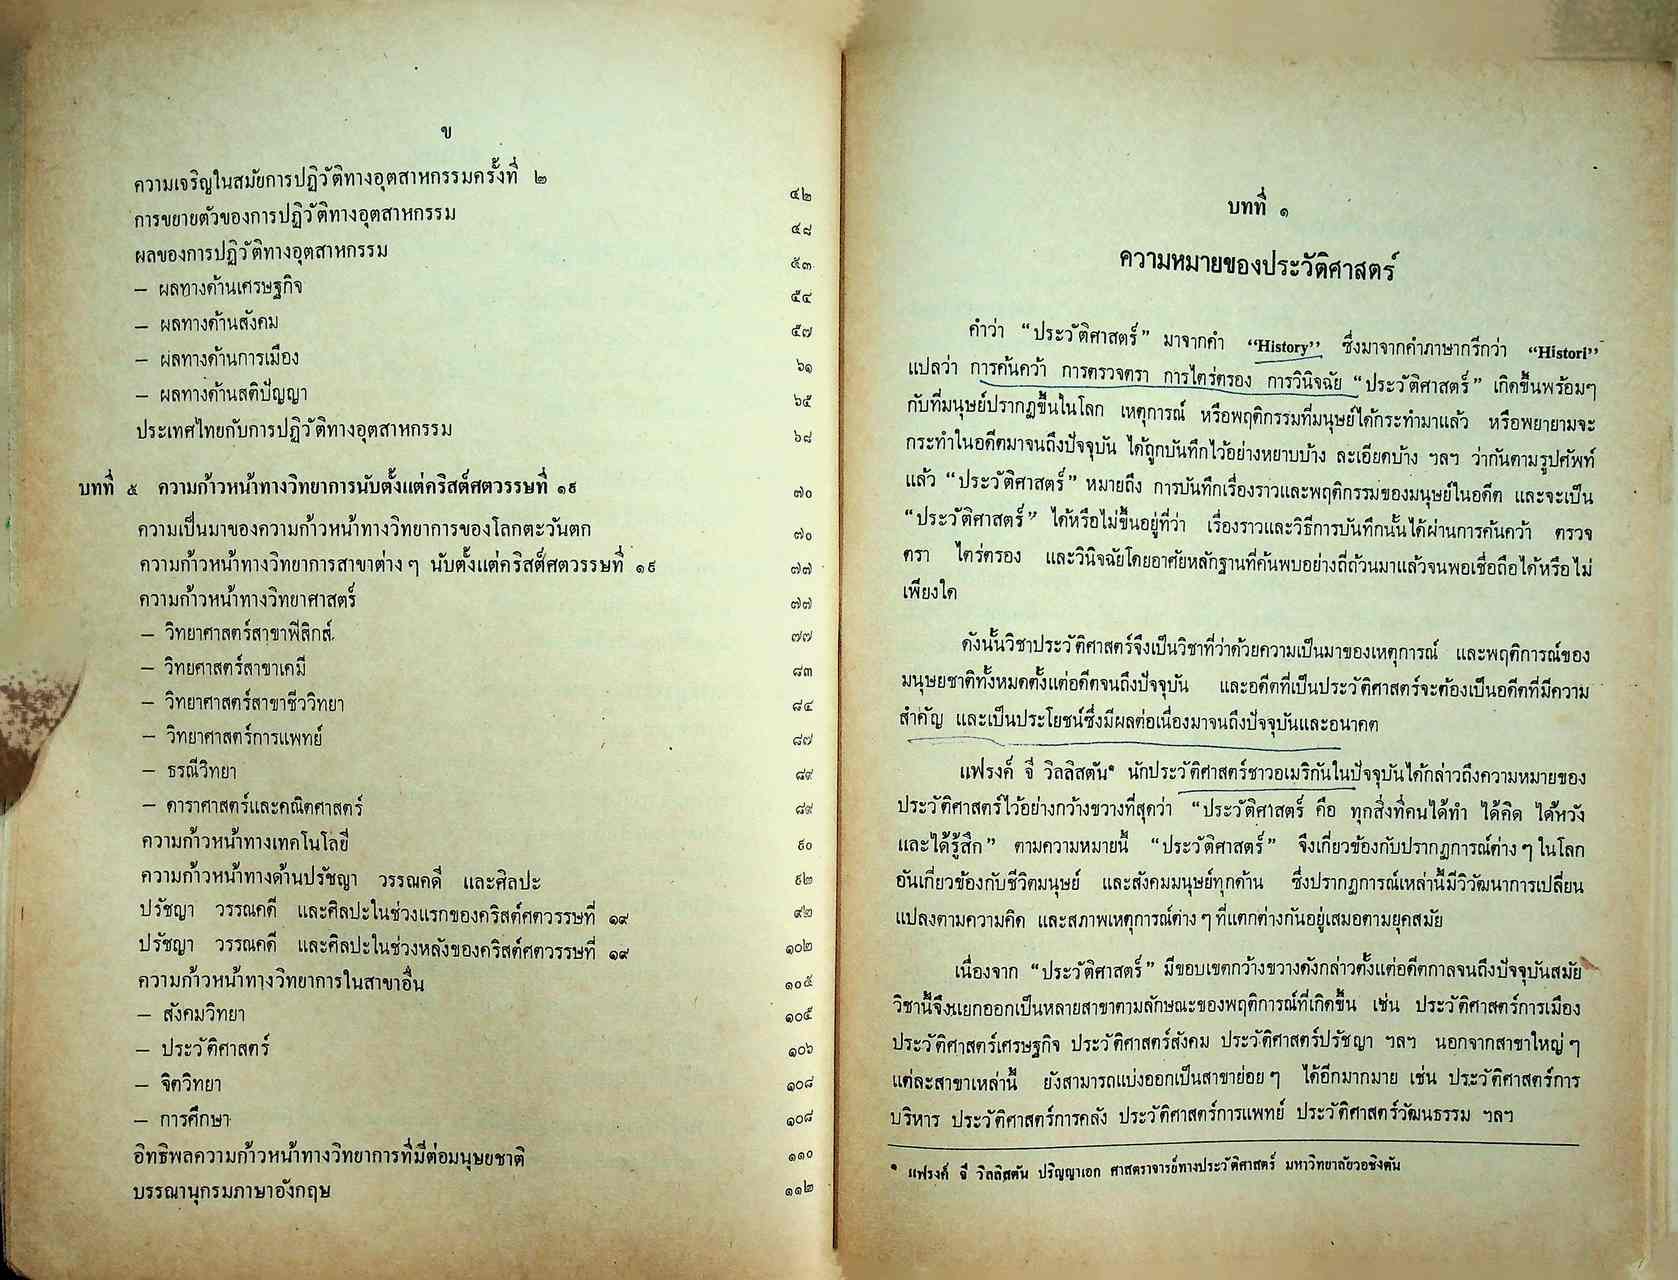 ข
ความเจริญในสมัยการปฏิวัติทางอุตสาหกรรมครั้งที่ ๒ ๔๒
การขยายตัวของการปฏิวัติทางอุตสาหกรรม ๔๘
ผลของการปฏิวัติทางอุตสาหกรรม ๕๓
– ผลทางด้านเศรษฐกิจ ๕๔
– ผลทางด้านสังคม ๕๗
– ผลทางด้านการเมือง ๖๑
– ผลทางด้านสติปัญญา ๖๕
ประเทศไทยกับการปฏิวัติทางอุตสาหกรรม ๖๘
บทที่ ๕ ความก้าวหน้าทางวิทยาการนับตั้งแต่คริสต์ศตวรรษที่ ๑๙ ๗๐
ความเป็นมาของความก้าวหน้าทางวิทยาการของโลกตะวันตก ๗๐
ความก้าวหน้าทางวิทยาการสาขาต่าง ๆ นับตั้งแต่คริสต์ศตวรรษที่ ๑๙ ๗๗
ความก้าวหน้าทางวิทยาศาสตร์ ๗๗
– วิทยาศาสตร์สาขาฟิสิกส์ ๗๗
– วิทยศาสตร์สาขาเคมี ๘๓
– วิทยาศาสตร์สาขาชีววิทยา ๘๔
– วิทยาศาสตร์การแพทย์ ๘๗
– ธรณีวิทยา ๘๙
– ดาราศาสตร์และคณิตศาสตร์ ๘๙
ความก้าวหน้าทางเทคโนโลยี ๙๐
ความก้าวหน้าทางด้านปรัชญา วรรณคดี และศิลปะ ๙๒
ปรัชญา วรรณคดี และศิลปะในช่วงแรกของคริสต์ศตวรรษที่ ๑๙ ๙๒
ปรัชญา วรรณคดี และศิลปะในช่วงหลังของคริสต์ศตวรรษที่ ๑๙ ๑๐๒
ความก้าวหน้าทางวิทยาการในสาขาอื่น ๑๐๕
– สังคมวิทยา ๑๐๕
– ประวัติศาสตร์ ๑๐๖
– จิตวิทยา ๑๐๘
– การศึกษา ๑๐๘
อิทธิพลความก้าวหน้าทางวิทยาการที่มีต่อมนุษยชาติ ๑๑๐
บรรณานุกรมภาษาอังกฤษ ๑๑๒
บทที่ ๑
ความหมายของประวัติศาสตร์
คำว่า “ประวัติศาสตร์” มาจากคำ “History” ซึ่งมาจากคำภาษากรีกว่า “Histori”
แปลว่า การค้นคว้า การตรวจตรา การไตร่ตรอง การวินิจฉัย “ประวัติศาสตร์” เกิดขึ้นพร้อมๆ
กับที่มนุษย์ปรากฏขึ้นในโลก เหตุการณ์ หรือพฤติกรรมที่มนุษย์ได้กระทำมาแล้ว หรือพยายามจะ
กระทำในอดีตมาจนถึงปัจจุบัน ได้ถูกบันทึกไว้อย่างหยาบบ้าง ละเอียดบ้าง ฯลฯ ว่ากันตามรูปศัพท์
แล้ว “ประวัติศาสตร์” หมายถึง การบันทึกเรื่องราวและพฤติกรรมของมนุษย์ในอดีต และจะเป็น
“ประวัติศาสตร์” ได้หรือไม่ขึ้นอยู่ที่ว่า เรื่องราวและวิธีการบันทึกนั้นได้ผ่านการค้นคว้า ตรวจ
ตรา ไตร่ตรอง และวินิจฉัยโดยอาศัยหลักฐานที่ค้นพบอย่างถี่ถ้วนมาแล้วจนพอเชื่อถือได้หรือไม่
เพียงใด
ดังนั้นวิชาประวัติศาสตร์จึงเป็นวิชาที่ว่าด้วยความเป็นมาของเหตุการณ์ และพฤติการณ์ของ
มนุษยชาติทั้งหมดตั้งแต่อดีตจนถึงปัจจุบัน และอดีตที่เป็นประวัติศาสตร์จะต้องเป็นอดีตที่มีความ
สำคัญ และเป็นประโยชน์ซึ่งมีผลต่อเนื่องมาจนถึงปัจจุบันและอนาคต
แฟรงค์ จี วิลลิสตัน* นักประวัติศาสตร์ชาวอเมริกันในปัจจุบันได้กล่าวถึงความหมายของ
ประวัติศาสตร์ไว้อย่างกว้างขวางที่สุดว่า “ประวัติศาสตร์ คือ ทุกสิ่งที่คนได้ทำ ได้คิด ได้หวัง
และได้รู้สึก” ตามความหมายนี้ “ประวัติศาสตร์” จึงเกี่ยวข้องกับปรากฏการณ์ต่าง ๆ ในโลก
อันเกี่ยวข้องกับชีวิตมนุษย์ และสังคมมนุษย์ทุกด้าน ซึ่งปรากฏการณ์เหล่านี้มีวิวัฒนาการเปลี่ยน
แปลงตามความคิด และสภาพเหตุการณ์ต่าง ๆ ที่แตกต่างกันอยู่เสมอตามยุคสมัย
เนื่องจาก “ประวัติศาสตร์” มีขอบเขตกว้างขวางดังกล่าวตั้งแต่อดีตกาลจนถึงปัจจุบันสมัย
วิชานี้จึงแยกออกเป็นหลายสาขาตามลักษณะของพฤติการณ์ที่เกิดขึ้น เช่น ประวัติศาสตร์การเมือง
ประวัติศาสตร์เศรษฐกิจ ประวัติศาสตร์สังคม ประวัติศาสตร์ปรัชญา ฯลฯ นอกจากสาขาใหญ่ ๆ
แต่ละสาขาเหล่านี้ ยังสามารถแบ่งออกเป็นสาขาย่อย ๆ ได้อีกมากมาย เช่น ประวัติศาสตร์การ
บริหาร ประวัติศาสตร์การคลัง ประวัติศาสตร์การแพทย์ ประวัติศาสตร์วัฒนธรรม ฯลฯ
* แฟรงค์ จี วิลลิสตัน ปริญญาเอก ศาสตราจารย์ทางประวัติศาสตร์ มหาวิทยาลัยวอชิงตัน